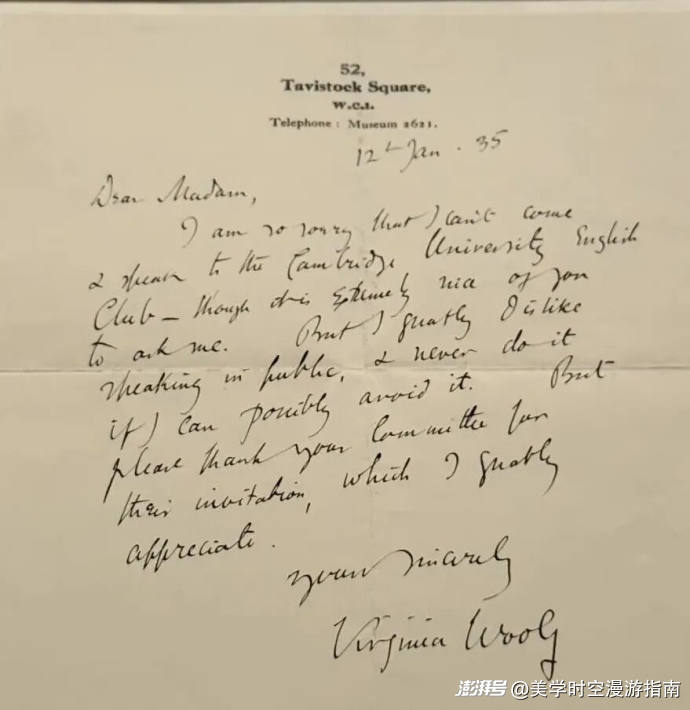 52,
Tavistock Square,
W.C.1.
Telephone: Museum 2621.
12th Jan. 35
Dear Madam,
I am so sorry that I can't come
& speak to the Cambridge University English
Club – though it is extremely nice of you
to ask me. But I greatly dislike
speaking in public, & never do it
if I can possibly avoid it. But
please thank your Committee for
their invitation, which I greatly
appreciate.
Yours sincerely
Virginia Woolf
澎湃号@美学时空漫游指南